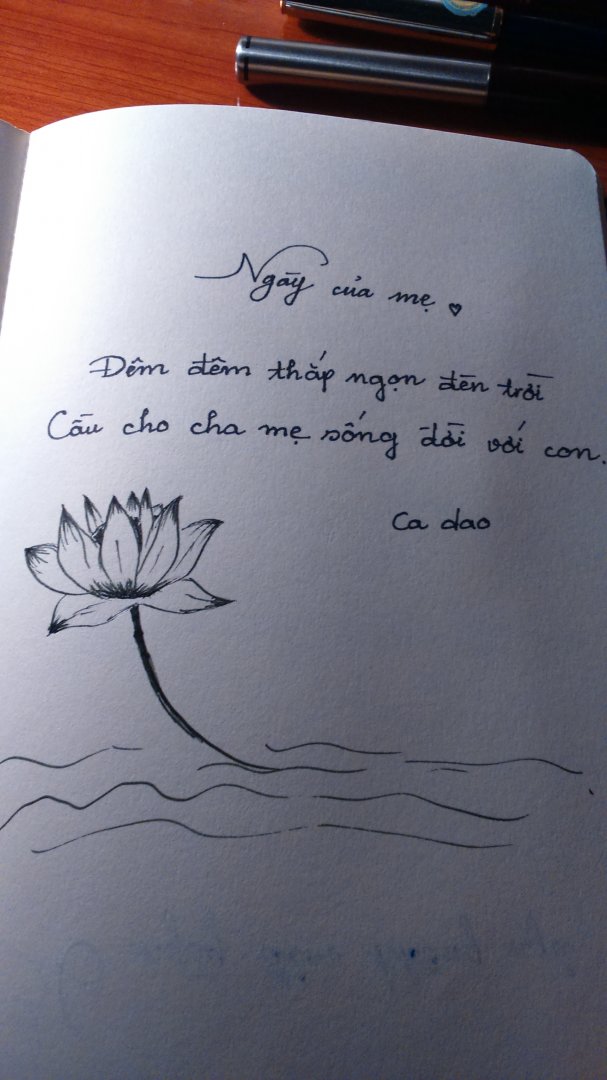 Ngày của mẹ
Đêm đêm thắp ngọn đèn trời
Cầu cho cha mẹ sống đời với con.
Ca dao